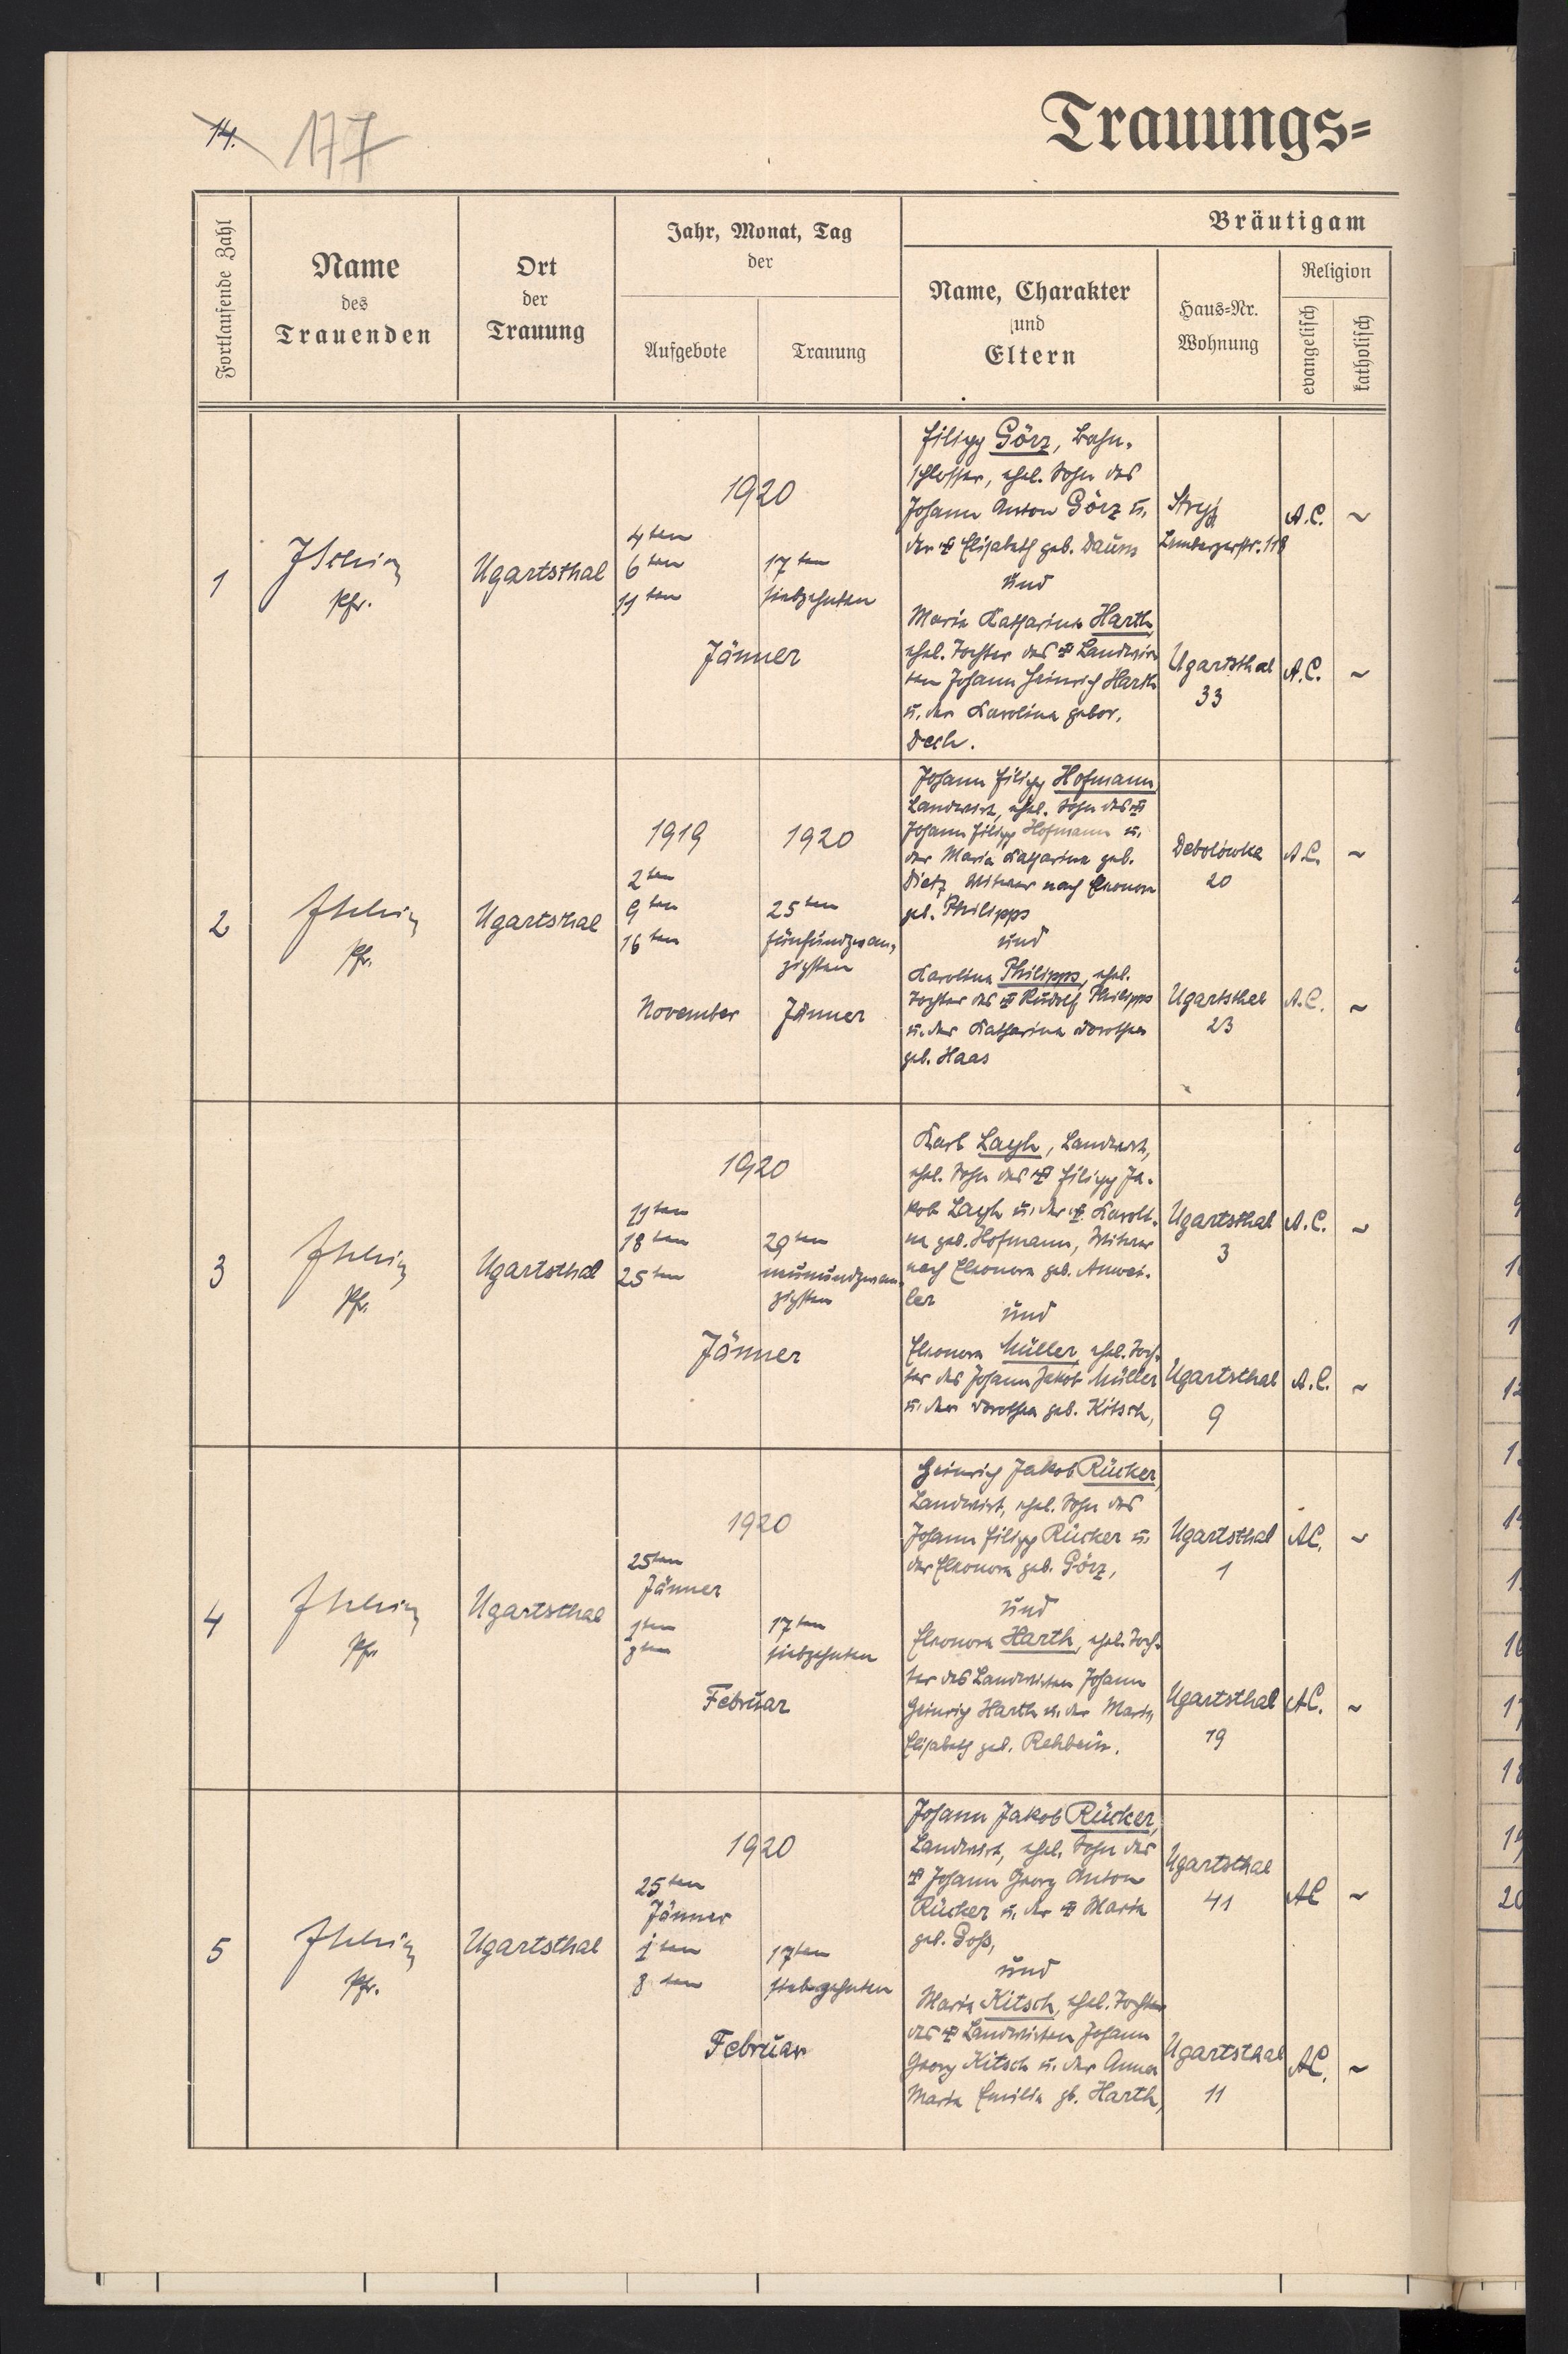 14. 177
Trauungs=
Fortlaufende Zahl
Name
des
Trauenden
Ort
der
Trauung
Jahr, Monat, Tag
der
Aufgebote
Trauung
Bräutigam
Name, Charakter
und
Eltern
Haus=Nr.
Wohnung
Religion
evangelisch
katholisch
1
Pfr.
Ugartsthal
1920
4ten
6ten
11ten
17ten
siebzehnten
Jänner
Filipp Görz, Bahn-
schlosser, ehel. Sohn des
Johann Anton Görz u.
der ✠ Elisabeth geb. Daum
und
Maria Katharina Harth,
ehel. Tochter des ✠ Landwir
ten Johann Heinrich Harth
u. der Karolina gebor.
Dech.
Stryj
Lembergerstr. 118
A.C. ~
Ugartsthal
33
A.C. ~
2
Pfr.
Ugartsthal
1919
2ten
9ten
16ten
November
1920
25ten
fünfundzwan-
zigsten
Jänner
Johann Filipp Hofmann,
Landwirt, ehel. Sohn des ✠
Johann Filipp Hofmann u.
der Maria Katharina geb.
Dietz, Witwer nach Eleonora
geb. Philipps
und
Karolina Philipps, ehel.
Tochter des ✠ Rudolf Philipps
u. der Katharina Dorothea
geb. Haas
Debolówka
20
A.C. ~
Ugartsthal
23
A.C. ~
3
Pfr.
Ugartsthal
1920
11ten
18ten
25ten
29ten
neunundzwan-
zigsten
Jänner
Karl Layh, Landwirt,
ehel. Sohn des ✠ Filipp Ja-
kob Layh u. der ✠ Karoli-
na geb. Hofmann, Witwer
nach Eleonora geb. Anwei-
ler
und
Eleonora Müller, ehel. Toch-
ter des Johann Jakob Müller
u. der Dorothea geb. Kitsch,
Ugartsthal
3
A.C. ~
Ugartsthal
9
A.C. ~
4
Pfr.
Ugartsthal
1920
25ten
Jänner
1ten
8ten
17ten
siebzehnten
Februar
Heinrich Jakob Rücker,
Landwirt, ehel. Sohn des
Johann Filipp Rücker u.
der Eleonora geb. Görz,
und
Eleonora Harth, ehel. Toch-
ter des Landwirten Johann
Heinrich Harth u. der Maria
Elisabeth geb. Rehbein.
Ugartsthal
1
AC. ~
Ugartsthal
19
AC. ~
5
Pfr.
Ugartsthal
1920
25ten
Jänner
1ten
8ten
17ten
siebzehnten
Februar
Johann Jakob Rücker,
Landwirt, ehel. Sohn des
✠ Johann Georg Anton
Rücker u. der ✠ Maria
geb. Goß,
und
Maria Kitsch, ehel. Tochter
des ✠ Landwirten Johann
Georg Kitsch u. der Anna
Maria Emilia gb. Harth,
Ugartsthal
41
AC ~
Ugartsthal
11
AC. ~